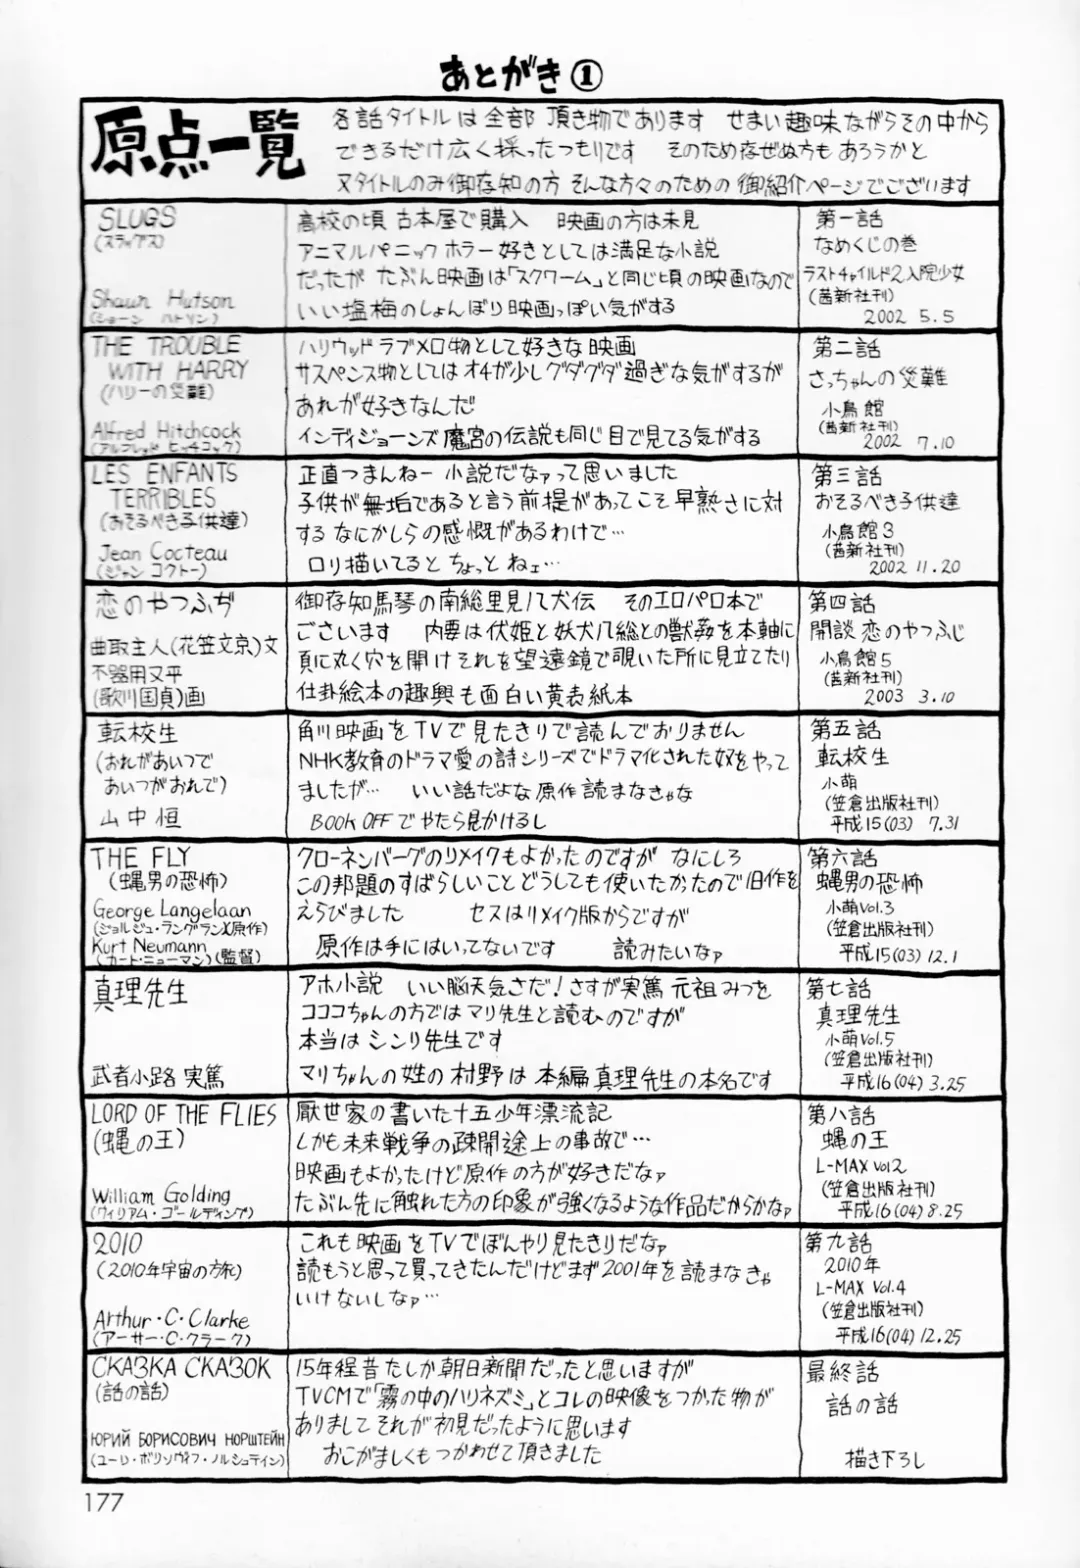 あとがき①
原点一覧
各話タイトルは全部 頂き物であります せまい趣味ながらその中から
できるだけ広く採ったつもりです そのため存ぜぬ方もあろうかと
又タイトルのみ御存知の方 そんな方々のための 御紹介ページでございます
SLUGS
(スラッグス)
Shaun Hutson
(ショーン ハトソン)
高校の頃 古本屋で購入 映画の方は未見
アニマルパニックホラー好きとしては満足な小説
だったが たぶん映画は「スクワーム」と同じ頃の映画なので
いい塩梅のしょんぼり映画っぽい気がする
第一話
なめくじの巻
ラストチャイルド2入院少女
(茜新社刊)
2002 5.5
THE TROUBLE
WITH HARRY
(ハリーの災難)
Alfred Hitchcock
(アルフレッド ヒッチコック)
ハリウッドラブメロ物として好きな映画
サスペンス物としてはオチが少しグダグダ過ぎな気がするが
あれが好きなんだ
インディジョーンズ魔宮の伝説も同じ目で見てる気がする
第二話
さっちゃんの災難
小鳥館
(茜新社刊)
2002 7.10
LES ENFANTS
TERRIBLES
(おそるべき子供達)
Jean Cocteau
(ジャン コクトー)
正直つまんねー小説だなァって思いました
子供が無垢であると言う前提があってこそ早熟さに対
するなにかしらの感慨があるわけで…
ロリ描いてるとちょっとねェ…
第三話
おそるべき子供達
小鳥館3
(茜新社刊)
2002 11.20
恋のやつふぢ
曲取主人(花笠文京)文
不器用又平
(歌川国貞)画
御存知馬琴の南総里見八犬伝 そのエロパロ本で
ございます 内要は伏姫と妖犬八総との獣姦を本軸に
頁に丸く穴を開けそれを望遠鏡で覗いた所に見立てたり
仕掛絵本の趣興も面白い黄表紙本
第四話
開談 恋のやつふじ
小鳥館5
(茜新社刊)
2003 3.10
転校生
(おれがあいつで
あいつがおれで)
山中恒
角川映画をTVで見たきりで読んでおりません
NHK教育のドラマ愛の詩シリーズでドラマ化された奴をやって
ましたが… いい話だよな原作読まなきゃな
BOOK OFFでやたら見かけるし
第五話
転校生
小萌
(笠倉出版社刊)
平成15(03) 7.31
THE FLY
(蝿男の恐怖)
George Langelaan
(ジョルジュ・ランゲラン)(原作)
Kurt Neumann
(カート・ニューマン)(監督)
クローネンバーグのリメイクもよかったのですが なにしろ
この邦題のすばらしいことどうしても使いたかったので旧作を
えらびました セスはリメイク版からですが
原作は手にはいってないです 読みたいなァ
第六話
蝿男の恐怖
小萌Vol.3
(笠倉出版社刊)
平成15(03) 12.1
真理先生
武者小路 実篤
アホ小説 いい脳天気さだ!さすが実篤 元祖みつを
コココちゃんの方ではマリ先生と読むのですが
本当はシンリ先生です
マリちゃんの姓の村野は本編真理先生の本名です
第七話
真理先生
小萌Vol.5
(笠倉出版社刊)
平成16(04) 3.25
LORD OF THE FLIES
(蝿の王)
William Golding
(ウィリアム・ゴールディング)
厭世家の書いた十五少年漂流記
しかも未来戦争の疎開途上の事故で…
映画もよかったけど原作の方が好きだなァ
たぶん先に触れた方の印象が強くなるような作品だからかなァ
第八話
蝿の王
L-MAX Vol2
(笠倉出版社刊)
平成16(04) 8.25
2010
(2010年宇宙の旅)
Arthur・C・Clarke
(アーサー・C・クラーク)
これも映画をTVでぼんやり見たきりだなァ
読もうと思って買ってきたんだけどまず2001年を読まなきゃ
いけないしなァ…
第九話
2010年
L-MAX Vol.4
(笠倉出版社刊)
平成16(04) 12.25
СКАЗКА СКАЗОК
(話の話)
ЮРИЙ БОРИСОВИЧ НОРШТЕЙН
(ユーリ・ボリソヴィフ・ノルシュテイン)
15年程昔たしか朝日新聞だったと思いますが
TVCMで「霧の中のハリネズミ」とコレの映像をつかった物が
ありましてそれが初見だったように思います
おこがましくもつかわせて頂きました
最終話
話の話
描き下ろし
177